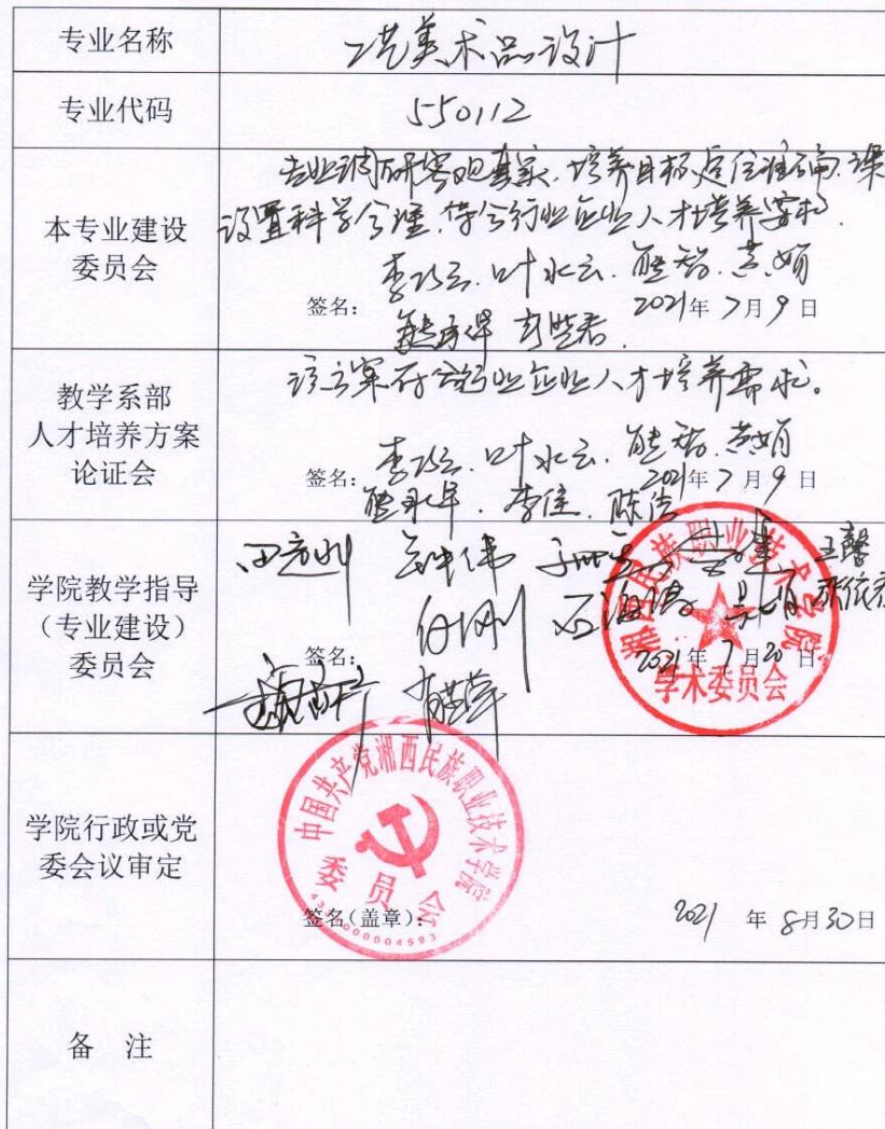 专业名称
工艺美术品设计
专业代码
550112
本专业建设
委员会
专业调研客观真实、培养目标定位准确、课
设置科学合理、符合行业企业人才培养需求.
李巧云. 叶水云. 熊智. 黄娟
签名: 2021年7月9日
教学系部
人才培养方案
论证会
该方案符合行业企业人才培养需求。
李巧云. 叶水云. 熊智. 黄娟
签名: 2021年7月9日
李佳. 陈洁
学院教学指导
(专业建设)
委员会
王馨
签名:
2021年7月20日
湘西民族职业技术学院
学术委员会
学院行政或党
委会议审定
中国共产党湘西民族职业技术学院
委员会
签名(盖章):
2021 年 8月30日
备 注